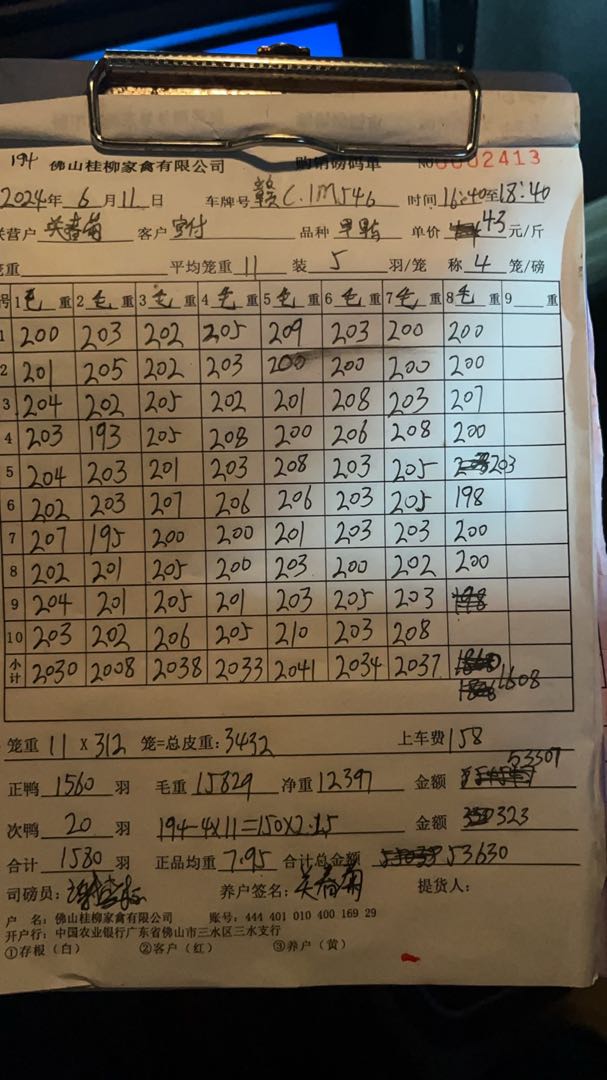 194 佛山桂柳家禽有限公司 购销磅码单 NO 0002413
2024年 6 月 11 日 车牌号 赣C.1M546 时间 16:40至18:40
联营户 关春菊 客户 品种 单价 43 元/斤
笼重 平均笼重 11 装 5 羽/笼 称 4 笼/磅
号 1毛重 2毛重 3毛重 4毛重 5毛重 6毛重 7毛重 8毛重 9 重
1 200 203 202 205 209 203 200 200
2 201 205 202 203 200 200 200 200
3 204 202 205 202 201 208 203 207
4 203 193 205 208 200 206 208 200
5 204 203 201 203 208 203 205 203
6 202 203 207 206 206 203 205 198
7 207 195 200 200 201 203 203 200
8 202 201 205 200 203 200 202 200
9 204 201 205 201 203 205 203
10 203 202 206 205 210 203 208
小计 2030 2008 2038 2033 2041 2034 2037 1608
笼重 11 X 312 笼=总皮重: 3432 上车费 158
正鸭 1560 羽 毛重 15829 净重 12397 金额 53307
次鸭 20 羽 194-4X11=150X2.15 金额 323
合计 1580 羽 正品均重 7.95 合计总金额 53630
司磅员: 养户签名: 关春菊 提货人:
户 名: 佛山桂柳家禽有限公司 账号: 444 401 010 400 169 29
开户行: 中国农业银行广东省佛山市三水区三水支行
①存根（白） ②客户（红） ③养户（黄）